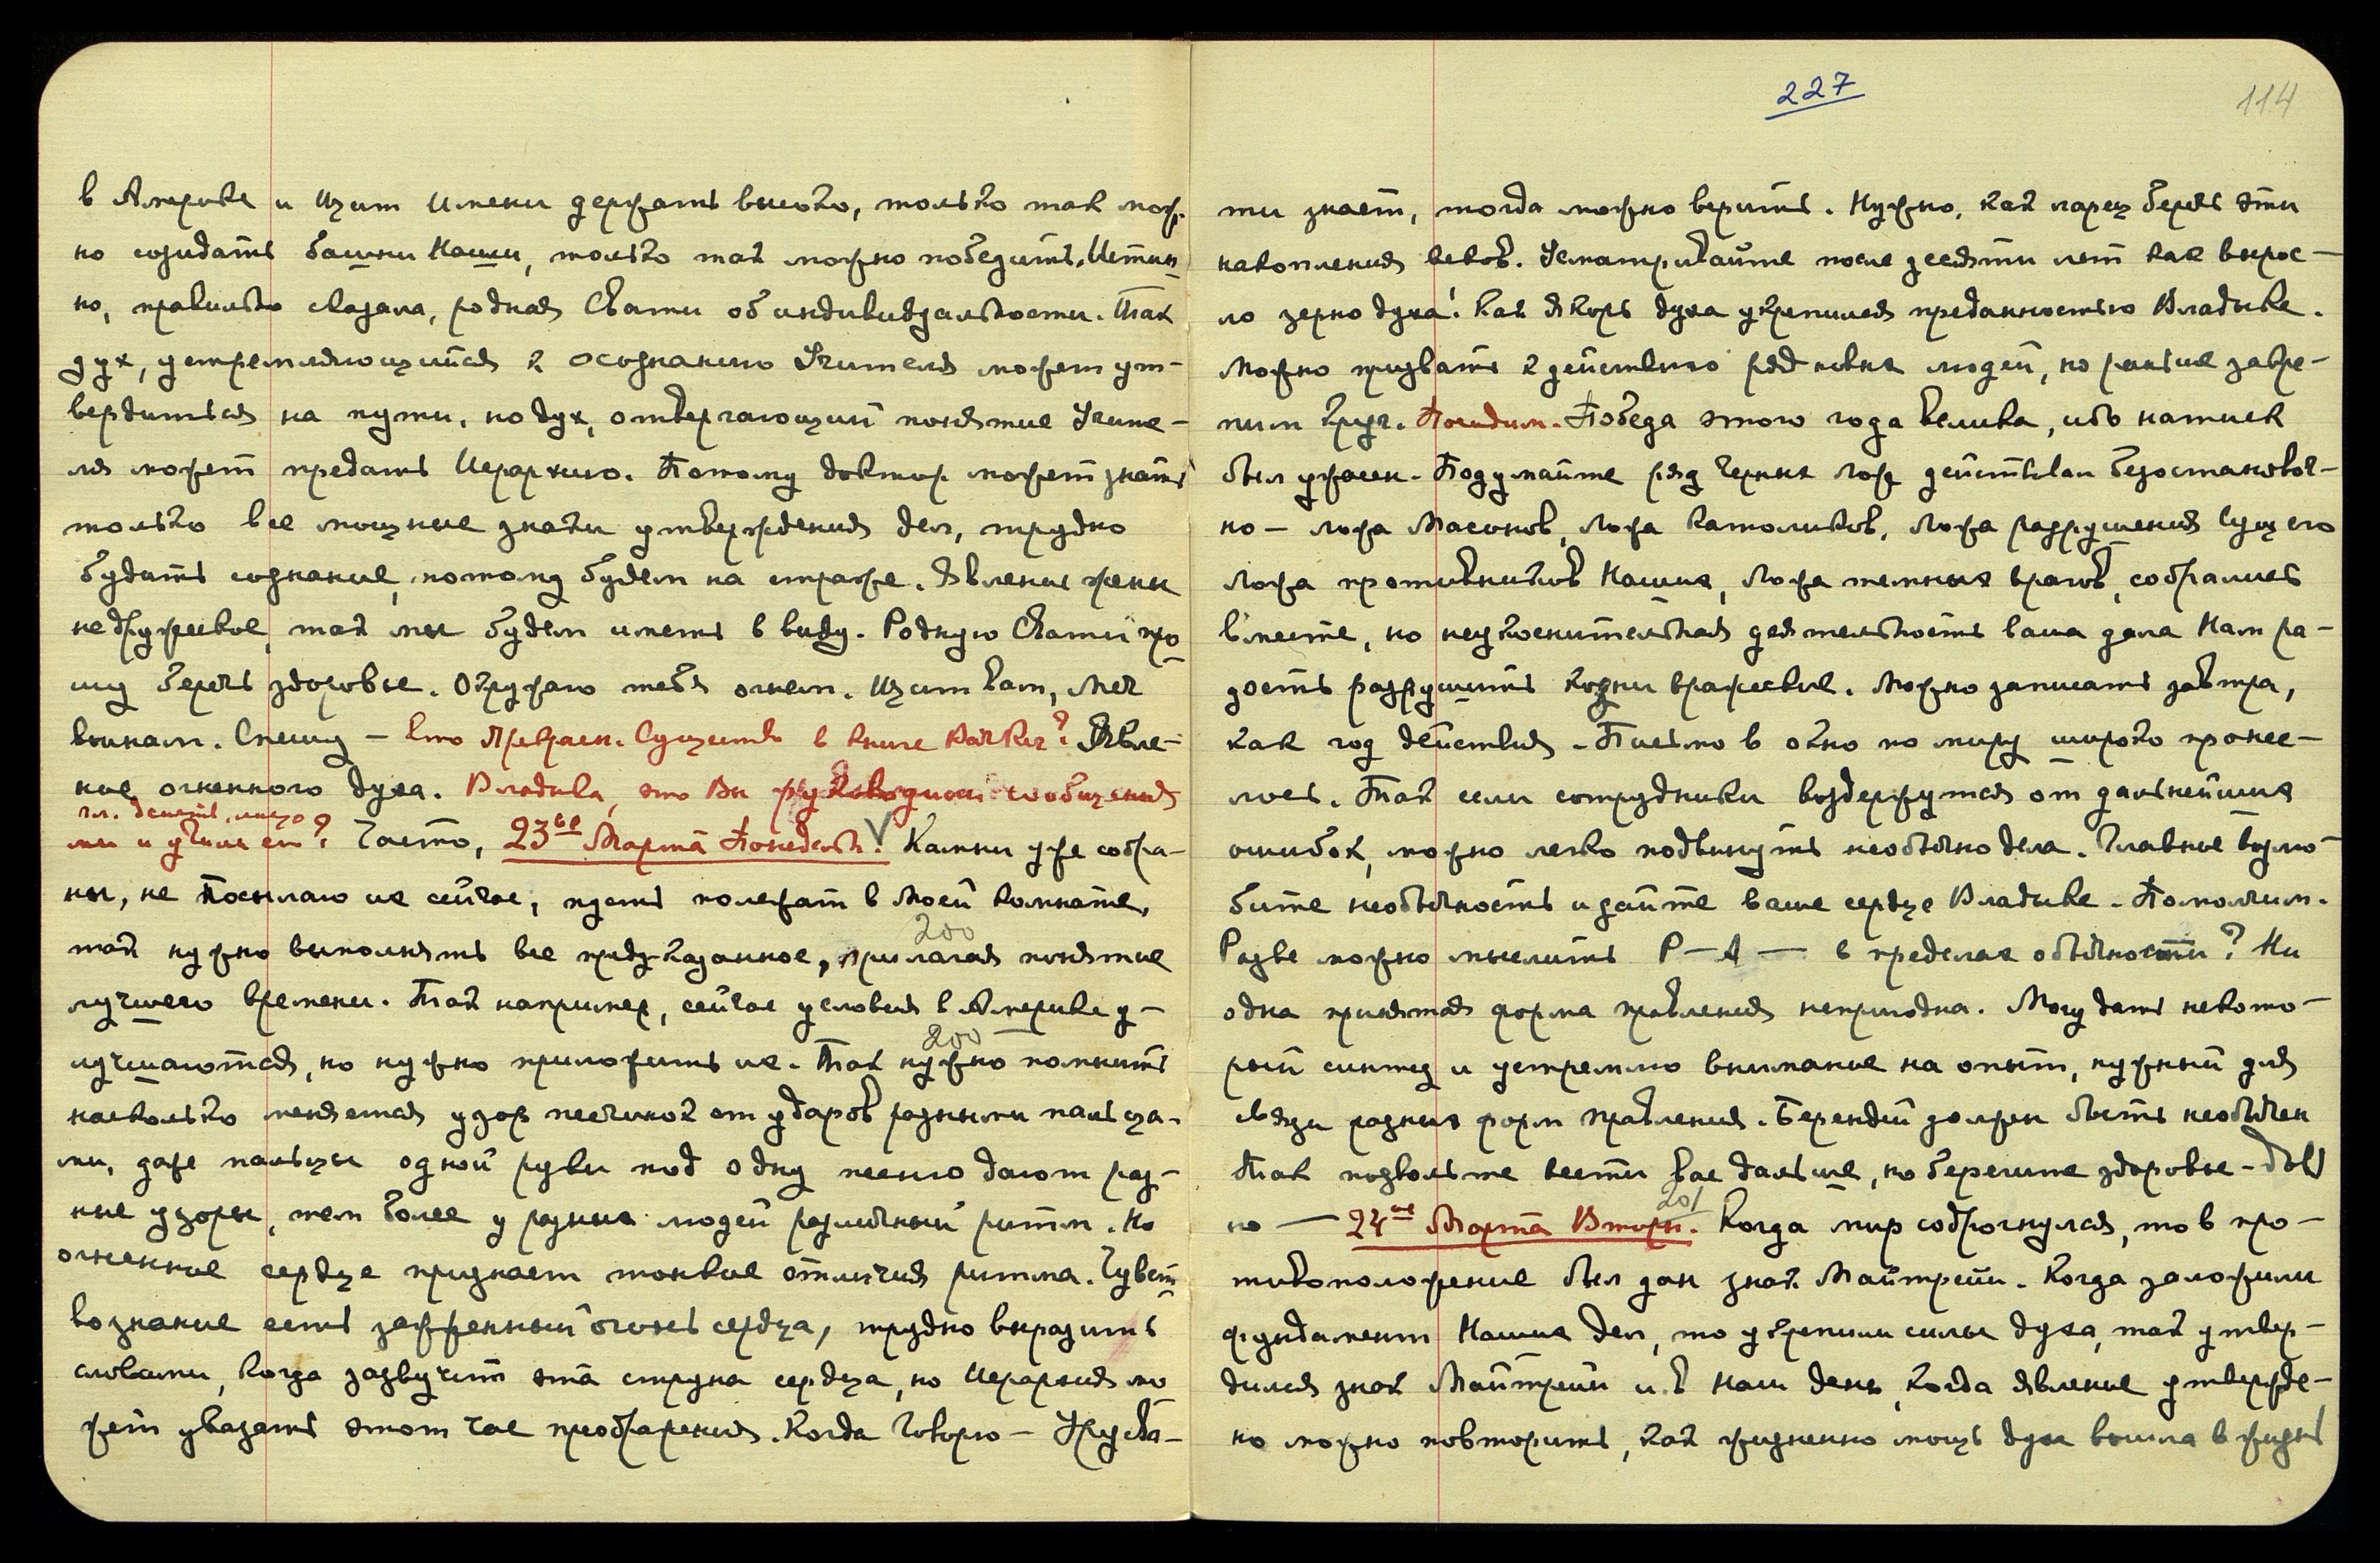 в Америке и Щит Имени держать высоко, только так мож-
но созидать башни Наши, только так можно победить. Истин-
но, правильно сказала, родная Свати об индивидуальности. Так
дух, устремляющийся к осознанию Учителя может ут-
вердиться на пути, но дух, отвергающий понятие Учите-
ля может предать Иерархию. Потому доктор может знать
только все мощные знаки утверждения дел, трудно
будить сознание, потому будем на страже. Явление жены
недружеское, так мы будем иметь в виду. Родную Свати про-
шу беречь здоровье. Окружаю тебя огнем. Щит вам, Меч
врагам. Спешу — Кто Прекрасн. Существо в книге? Явле-
ние огненного духа. Владыка, это Вы руководили сообщения
ми и учили его? Часто, 23ье Марта Понедельн. Камни уже собра-
ны, не посылаю их сейчас, пусть полежат в Моей комнате,
200
так нужно выполнять все предуказанное, прилагая понятие
лучшего времени. Так например, сейчас условия в Америке у-
200
лучшаются, но нужно приложить их. Так нужно помнить
насколько меняется узор песчинок от ударов разными пальца-
ми, даже пальцы одной руки под одну песню дают раз-
ные узоры, тем более у разных людей различный ритм. Но
огненное сердце признает тонкие отличия ритма. Чувст-
вознание есть зажженный огонь сердца, трудно выразить
словами, когда зазвучит эта струна сердца, но Иерархия мо
жет указать этот час преображения. Когда Говорю — Урусва-
227
114
ти знает, тогда можно верить. Нужно, как ларец беречь эти
накопления веков. Усматривайте после десяти лет как вырос-
ло зерно духа! Как якорь духа укрепился преданностью Владыке.
Можно призвать к действию ряд новых людей, но раньше закре-
пим круг. Посидим. Победа этого года велика, ибо натиск
был ужасен. Подумайте ряд черных лож действовал безостановоч-
но — ложа Масонов, ложа католиков, ложа разрушения Сущего
ложа противников Наших, ложа темных врагов, собрались
вместе, но неукоснительная деятельность ваша дала Нам ра-
дость разрушить козни вражеские. Можно записать завтра,
как год действия. Письмо в окно по миру широко пронес-
лось. Так если сотрудники воздержутся от дальнейших
ошибок, можно легко подвинуть необычно дела. Главное возлю-
бите необычность и дайте ваше сердце Владыке. Помолчим.
Разве можно мыслить Р — А — в пределах обычности? Ни
одна принятая форма правления непригодна. Могу дать некото-
рый синтез и устремлю внимание на опыт, нужный для
связи разных форм правления. Берендей должен быть необычен
Так позвольте вести вас дальше, но берегите здоровье — Дов
201
но — 24ое Марта Вторн. Когда мир содрогнулся, то в про-
тивоположение был дан знак Майтрейи. Когда заложили
фундамент Наших дел, то укрепили силы духа, так утвер-
дился знак Майтрейи и в наш день, когда явление утвержде-
но можно повторить, как жизненно мощь духа вошла в жизнь